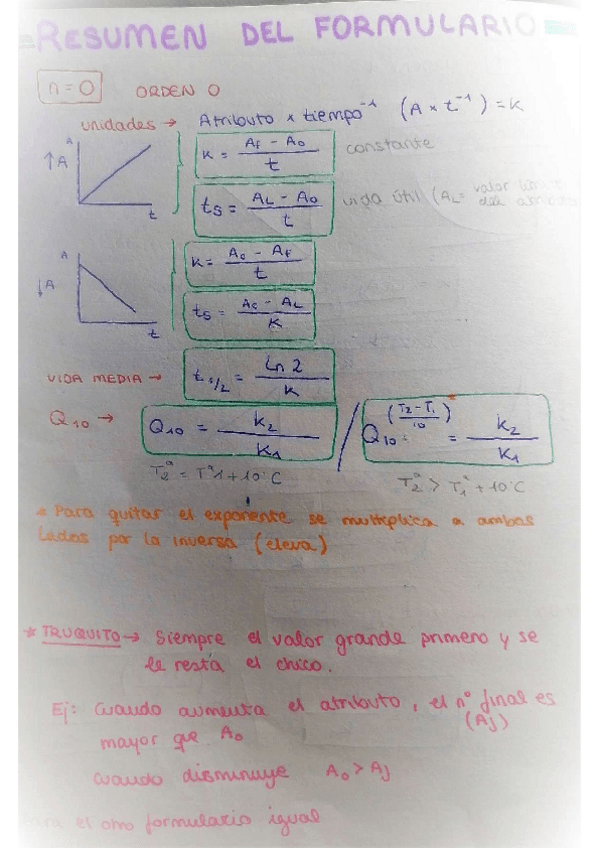 RESUMEN DEL FORMULARIO
n = 0 ORDEN 0
unidades → Atributo × tiempo⁻¹ (A × t⁻¹) = K
A
↑A
t
K = (Af - A0) / t constante
ts = (AL - A0) / t vida útil (AL = valor
del
A
↓A
t
K = (A0 - Af) / t
ts = (A0 - AL) / K
VIDA MEDIA → t1/2 = Ln 2 / K
Q10 → Q10 = K2 / K1 / Q10^((T2 - T1) / 10) = K2 / K1 *
T2ª = Tª1 + 10ºC T2ª > T1ª + 10ºC
* Para quitar el exponente se multiplica a ambos
lados por la inversa (eleva)
* TRUQUITO → Siempre el valor grande primero y se
le resta el chico.
Ej: Cuando aumenta el atributo, el nº final es
(Af)
mayor que A0
Cuando disminuye A0 > Af
el otro formulario igual